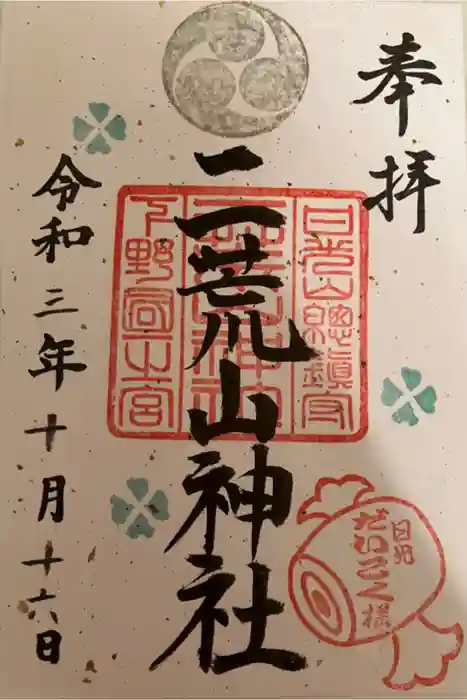 奉拝
日光山總鎮守
二荒山神社
下野国一之宮
令和三年十月十六日
日光
だいこく様